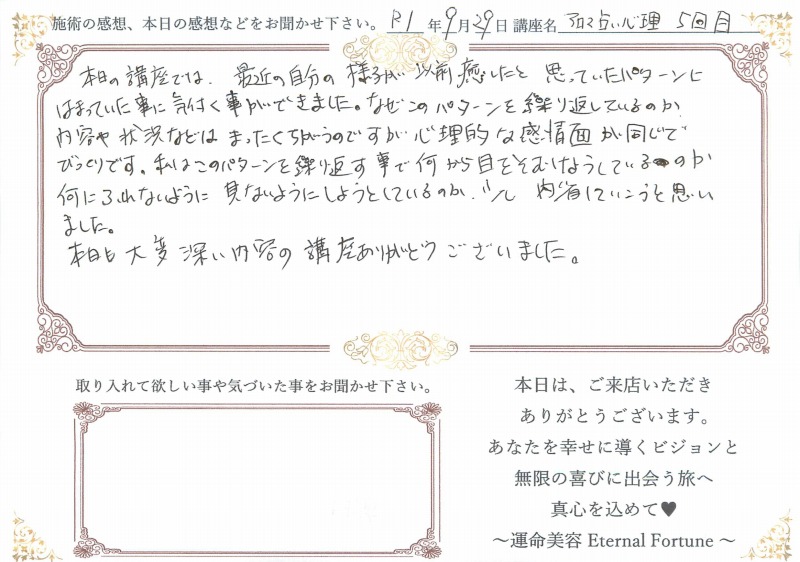 施術の感想、本日の感想などをお聞かせ下さい。 R1 年 9 月 29 日 講座名 アロマ占い心理 5回目
本日の講座では、最近の自分の様子が以前癒したと思っていたパターンに
はまっていた事に気付く事ができました。なぜこのパターンを繰り返しているのか
内容や状況などはまったくちがうのですが心理的な感情面が同じで
びっくりです。私はこのパターンを繰り返す事で何から目をそむけようしているのか
何にふれないように見ないようにしようとしているのか、少し内省していこうと思い
ました。
本日も大変深い内容の講座ありがとうございました。
取り入れて欲しい事や気づいた事をお聞かせ下さい。
本日は、ご来店いただき
ありがとうございます。
あなたを幸せに導くビジョンと
無限の喜びに出会う旅へ
真心を込めて♥
～運命美容 Eternal Fortune ～